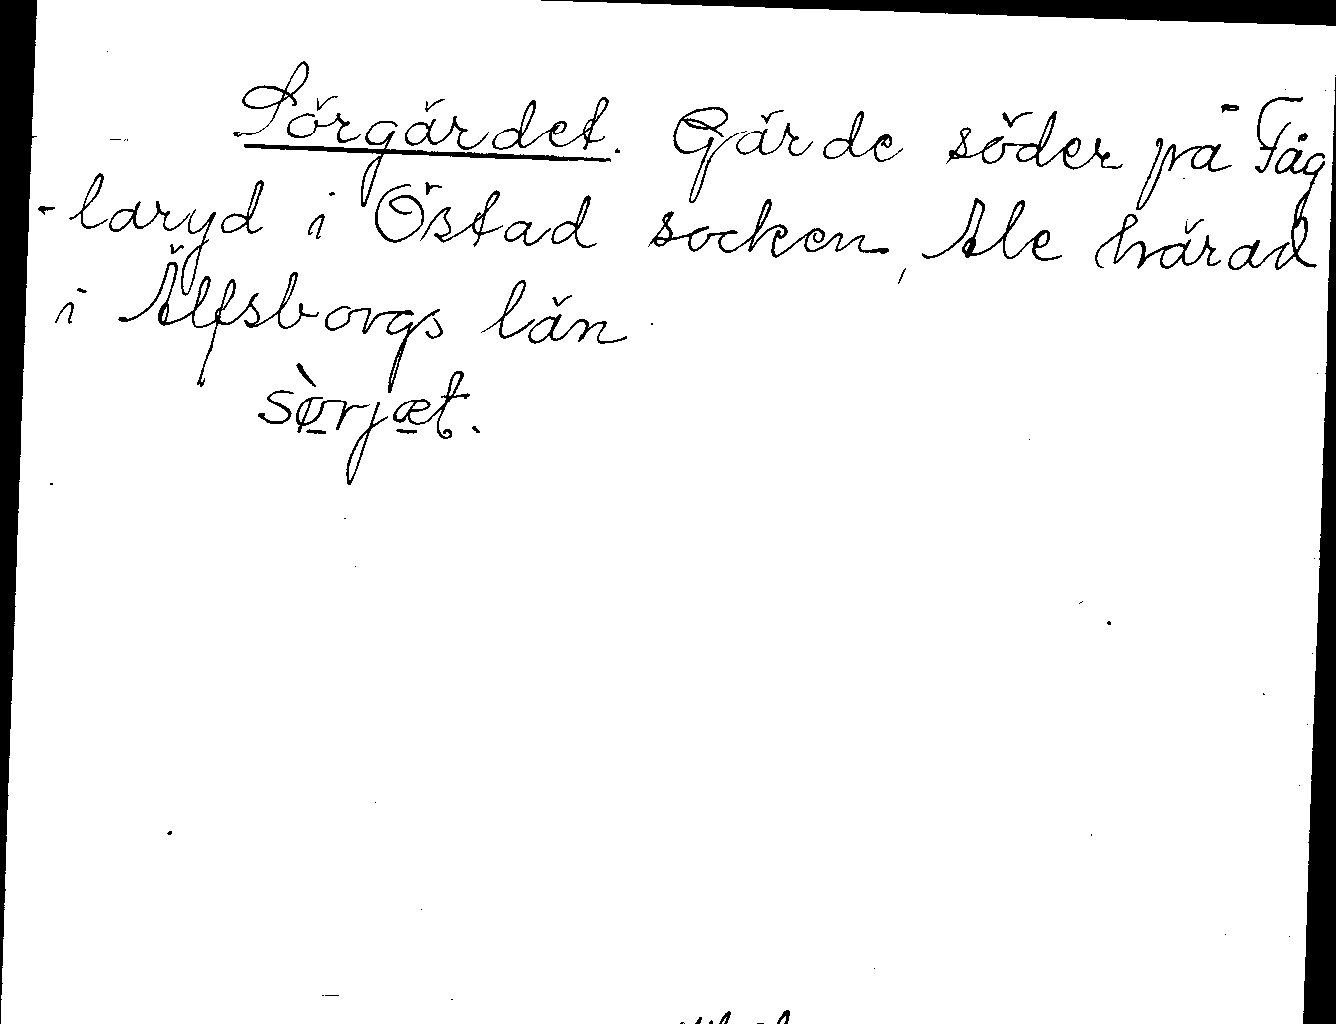 Sörgärdet. Gärde söder på Fåg
-laryd i Östad socken, Ale härad
i Älfsborgs län
sø̀rjæt.